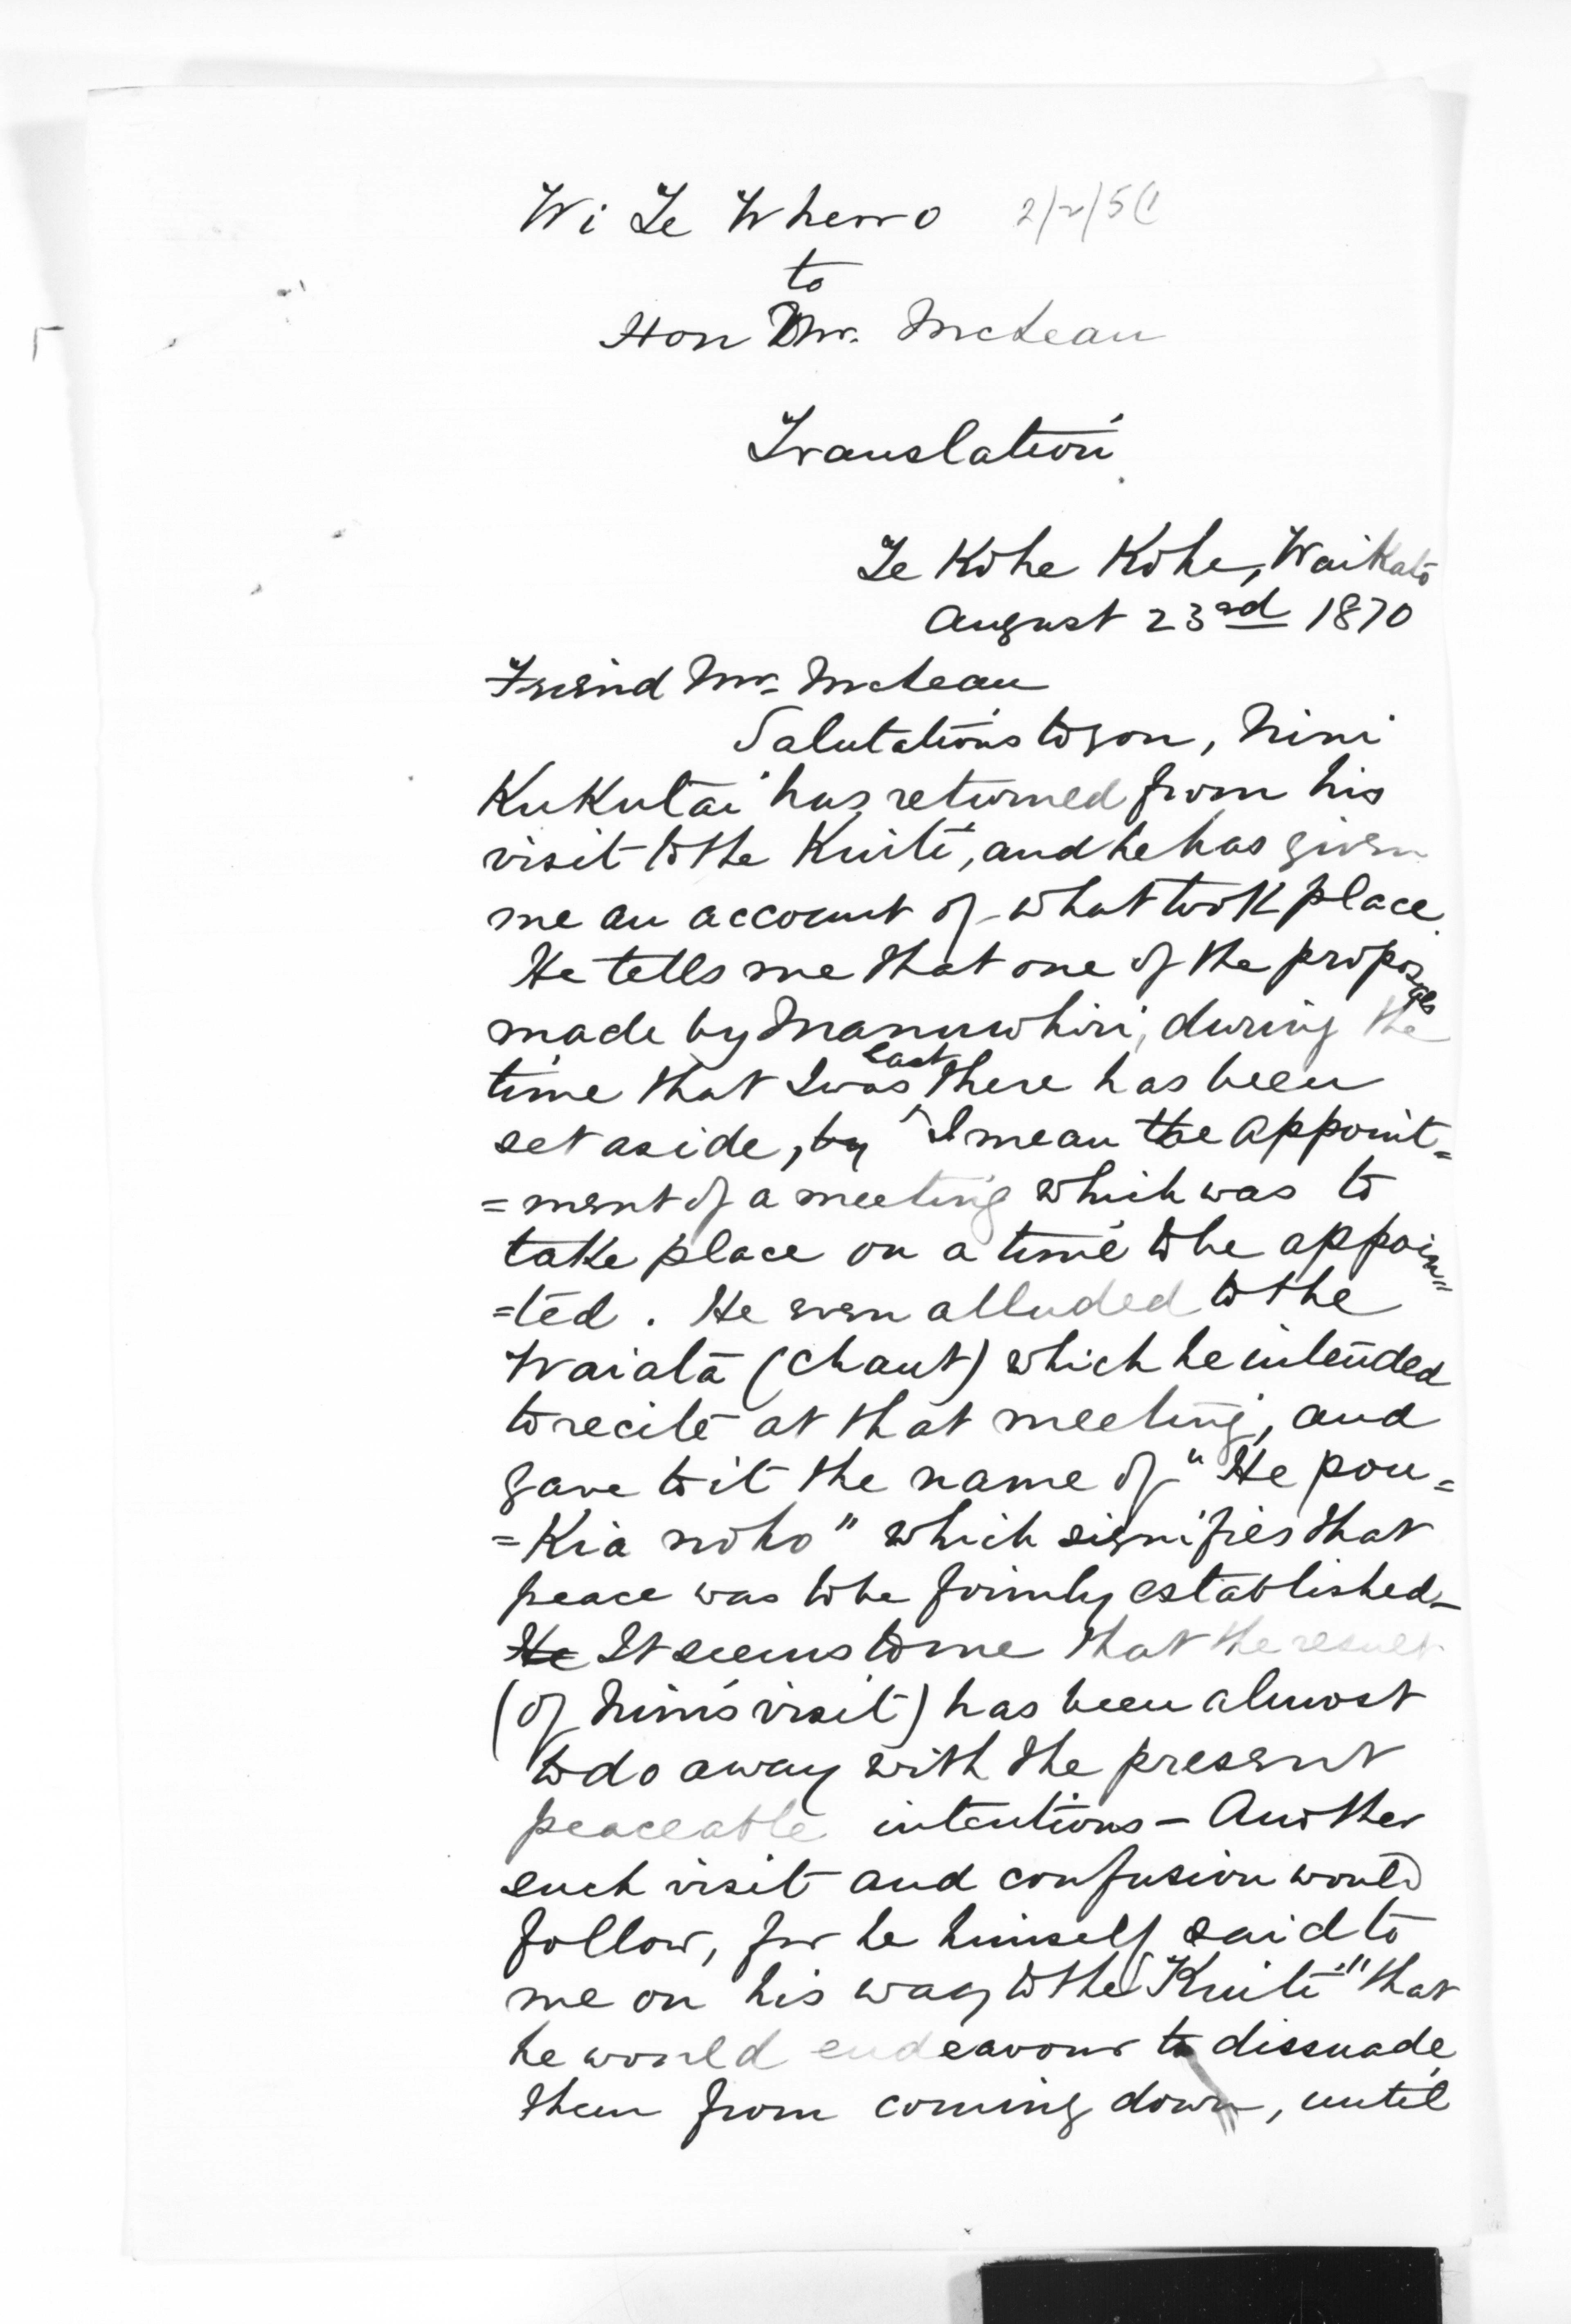 Wi Te Whero
to
Hon Mr. McLean
Translation
Te Kohe Kohe, Waikato
August 23rd 1870
Friend Mr. McLean
Salutations to you, Nini
Kukutai has returned from his
visit to the Kuiti, and he has given
me an account of what took place.
He tells me that one of the proposals
made by Manuwhiri, during the
time that I was last there has been
set aside, by I mean the appoint=
=ment of a meeting which was to
take place on a time to be appoin=
=ted. He even alluded to the
Waiata (chant) which he intended
to recite at that meeting, and
gave to it the name of "He pou=
=Kia noho" which signifies that
peace was to be firmly established_
He It seems to me that the result
(of Nini's visit) has been almost
to do away with the present
peaceable intentions – Another
such visit and confusion would
follow, for he himself said to
me on his way to the "Kuiti" that
he would endeavour to dissuade
them from coming down, until